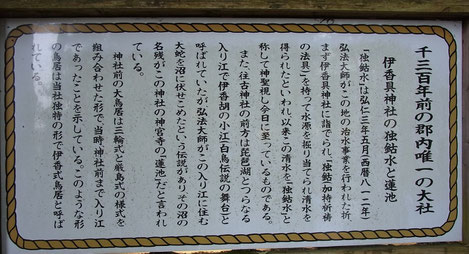 千三百年前の郡内唯一の大社
伊香具神社の独鈷水と蓮池
「独鈷水」は弘仁三年五月(西暦八一二年)
弘法大師がこの地の治水事業を行われた折、
まず伊香具神社に詣でられ、「独鈷」(加持祈祷
の法具)を持って水源を掘り当てられ清水を
得られたといわれ以来この清水を「独鈷水」と
称して神聖視し今日に至っているものである。
また、往古神社の前方は琵琶湖とつらなる
入り江で伊香胡の小江(白鳥伝説の舞台)と
呼ばれていたが弘法大師がこの入り江に住む
大蛇を沼に伏せこめたという伝説がありその沼の
名残がこの神社の神宮寺の「蓮池」だと言われ
ている。
神社前の大鳥居は三輪式と厳島式の様式を
組み合わせた形で、当時、神社前まで入り江
であったことを示している。このような形
の鳥居は当社独特の形で伊香式鳥居と呼ば
れている。